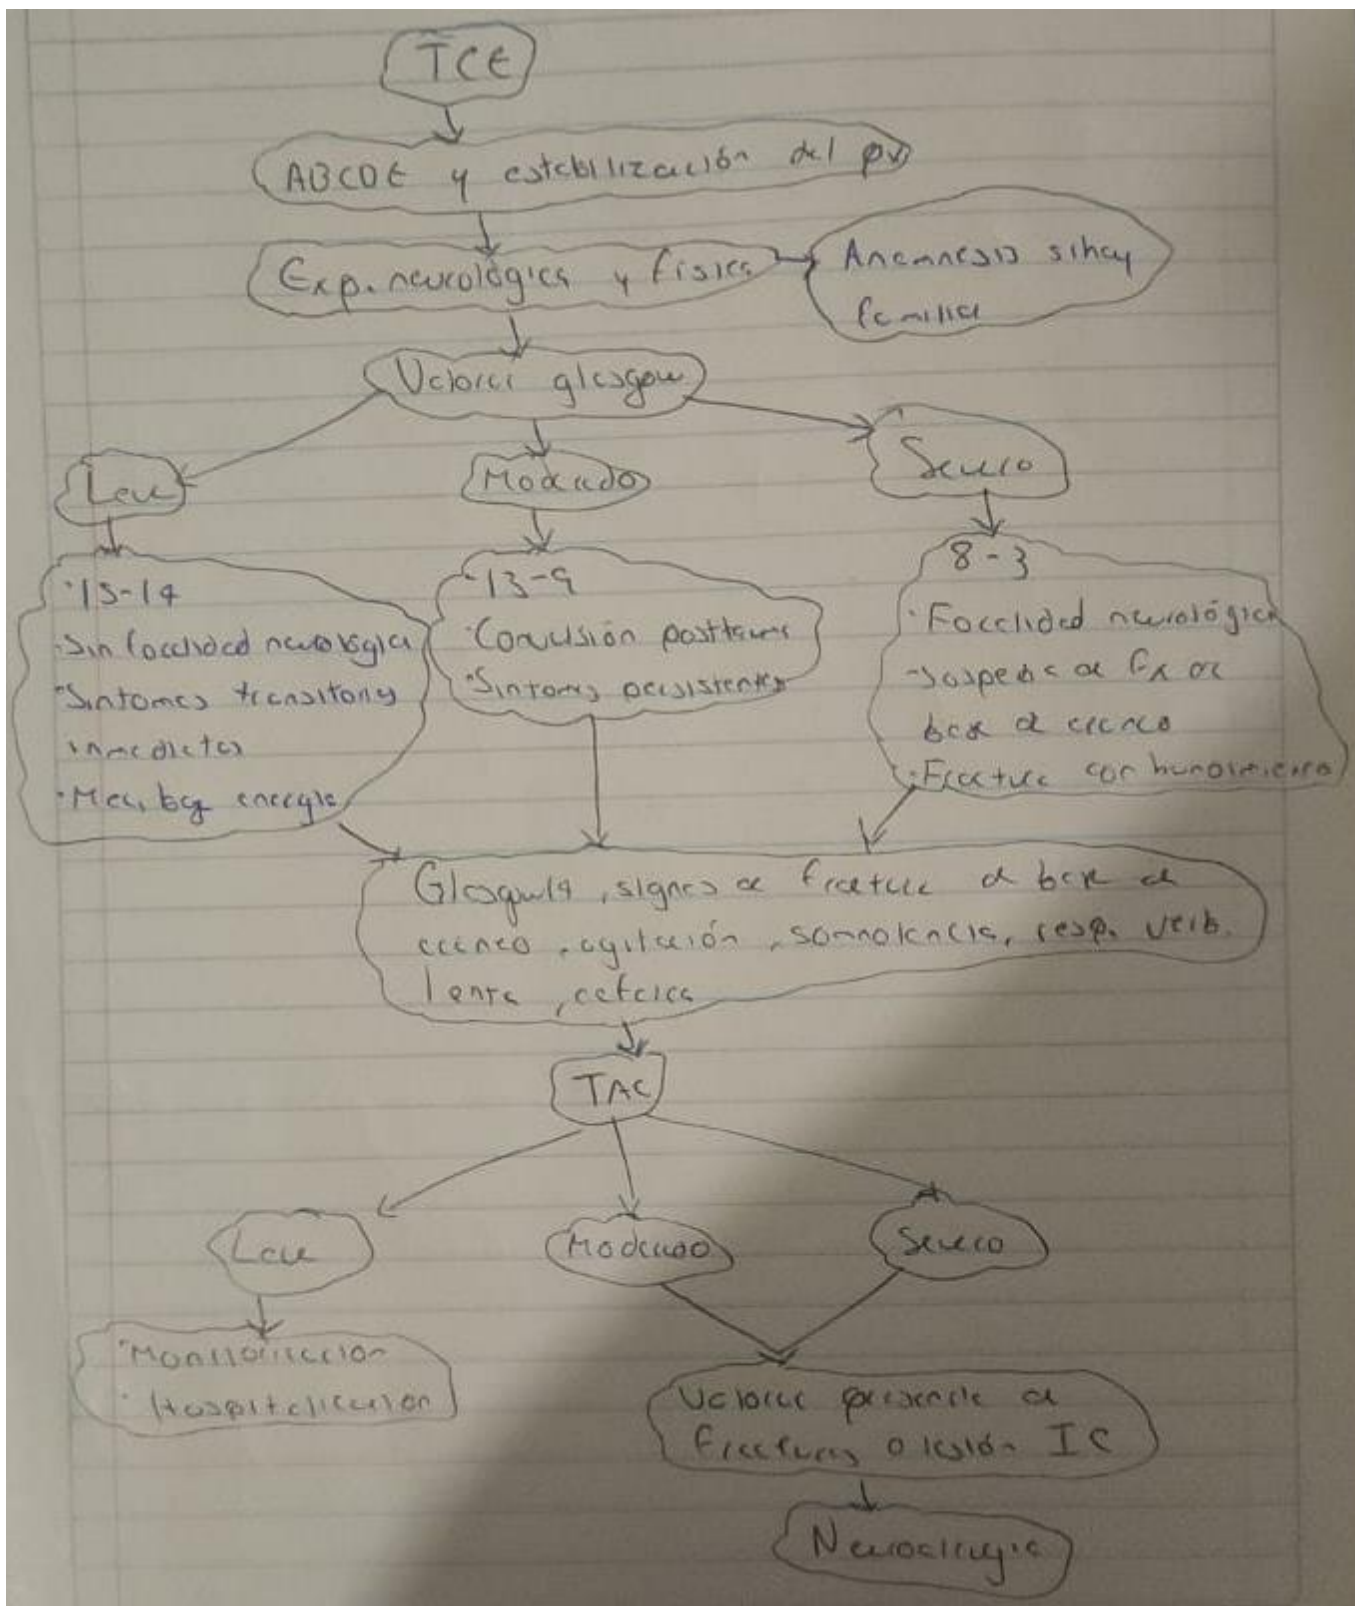 TCE
ABCDE y estabilización del px
Exp. neurológica y física
Anamnesis si hay
familia
Valorar glasgow
Leve
Moderado
Severo
·15-14
·Sin focalidad neurológica
·Síntomas transitorios
inmediatos
·Mec. baja energía
·13-9
·Convulsión posttauma
·Síntomas persistentes
8-3
·Focalidad neurológica
·Sospecha de Fx de
base de craneo
·Fractura con hundimiento
Glasgow 14, signos de fractura de base de
craneo, agitación, somnolencia, resp. verb.
lenta, cefalea
TAC
Leve
Moderado
Severo
·Monitorización
·Hospitalización
Valorar presencia de
fracturas o lesión IC
Neurocirugía